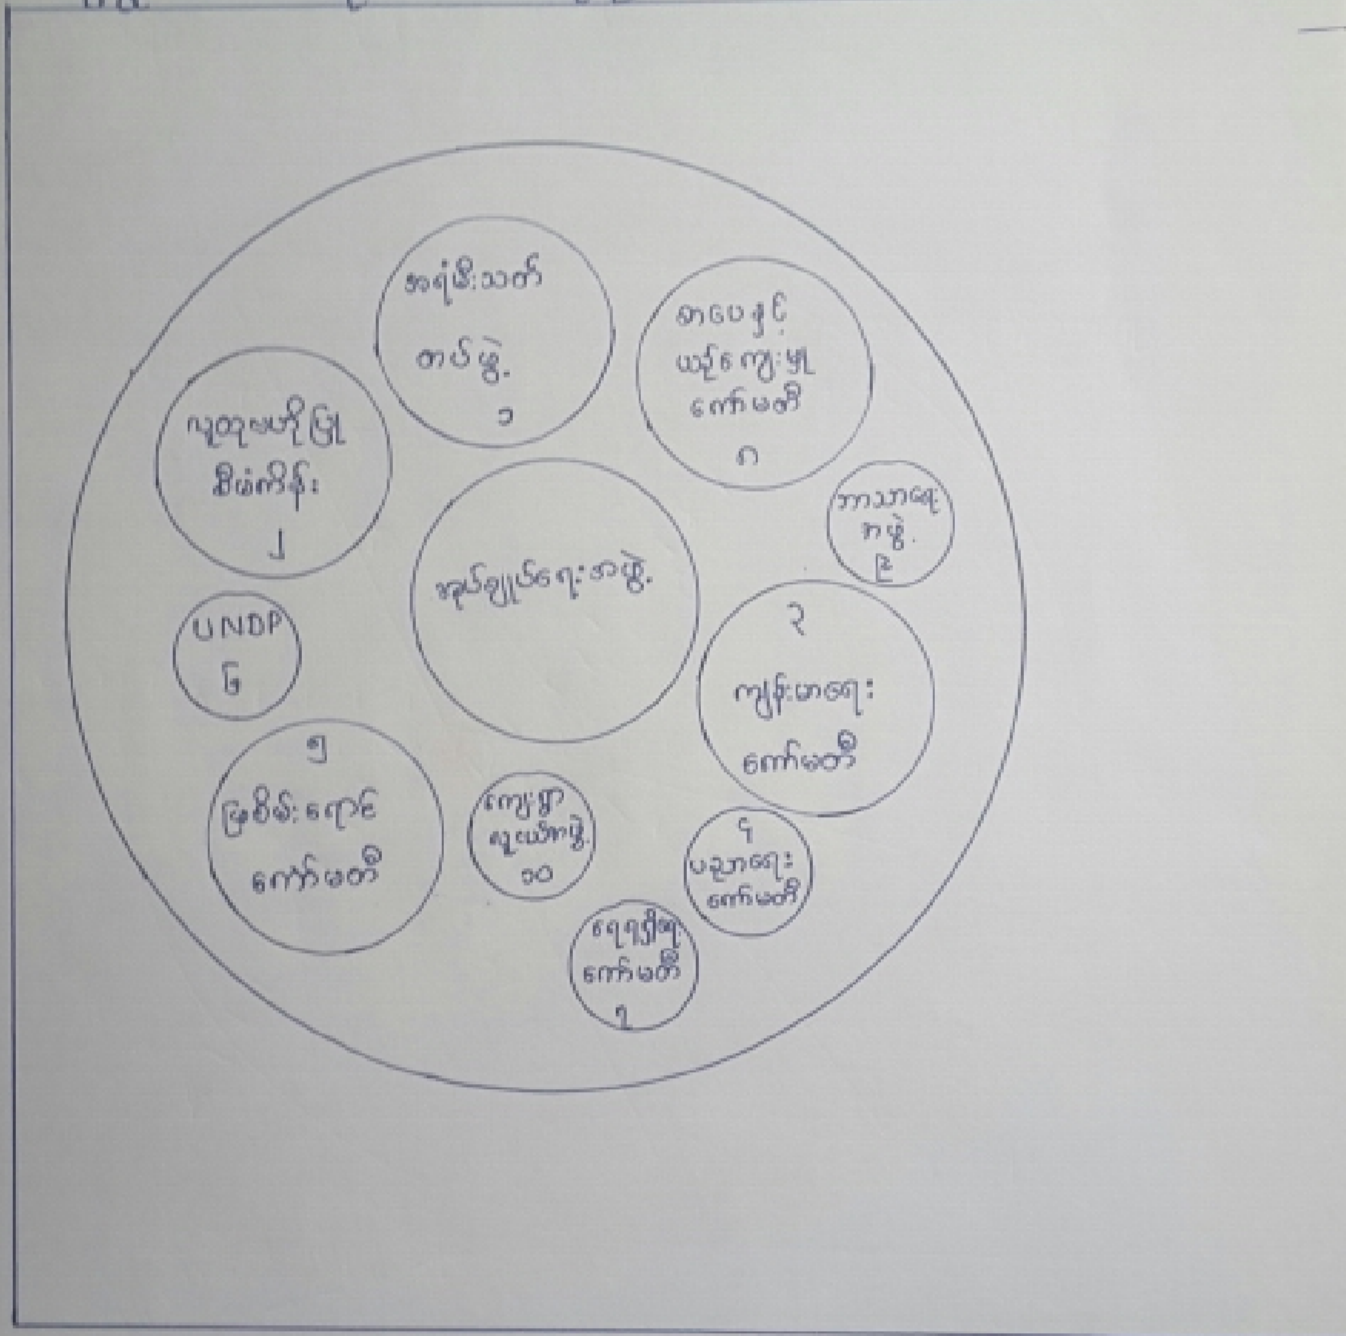 အရံမီးသတ်
တပ်ဖွဲ့
၁
စာပေနှင့်
ယဉ်ကျေးမှု
ကော်မတီ
၈
လူထုဗဟိုပြု
စီမံကိန်း
၂
ဘာသာရေး
အဖွဲ့
၉
အုပ်ချုပ်ရေးအဖွဲ့
UNDP
၆
၃
ကျန်းမာရေး
ကော်မတီ
၅
မြစိမ်းရောင်
ကော်မတီ
ကျေးရွာ
လူငယ်အဖွဲ့
၁၀
၄
ပညာရေး
ကော်မတီ
ရေရရှိရေး
ကော်မတီ
၇